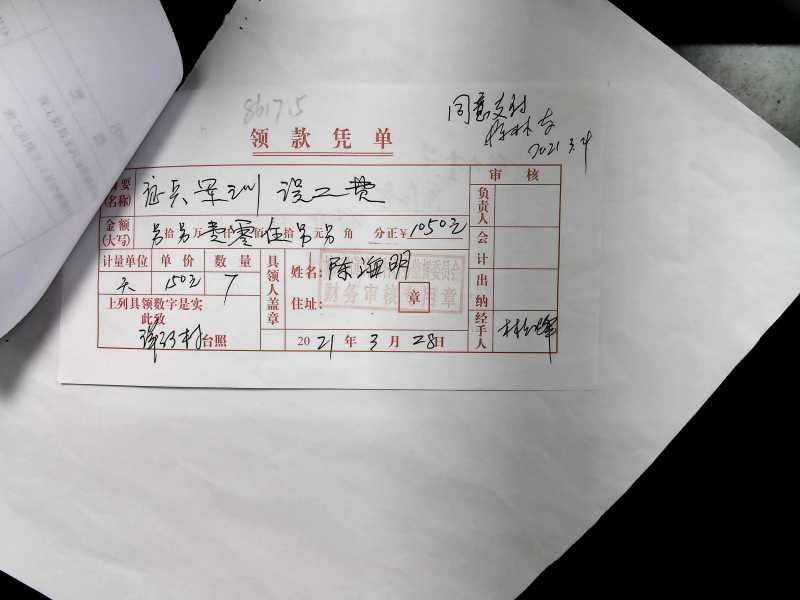 8617.5
同意支付
2021.3.4
领款凭单
摘要(名称)
误工费
审核
金额(大写) 拾 万 壹仟零佰伍拾 元 角 分正¥1050元
负责人
会计
出纳
经手人
计量单位 单价 数量
天 150元 7
具领人盖章
姓名: 陈海明
财务审核专用章
住址:
章
上列具领数字是实
此致
村台照
2021年3月28日